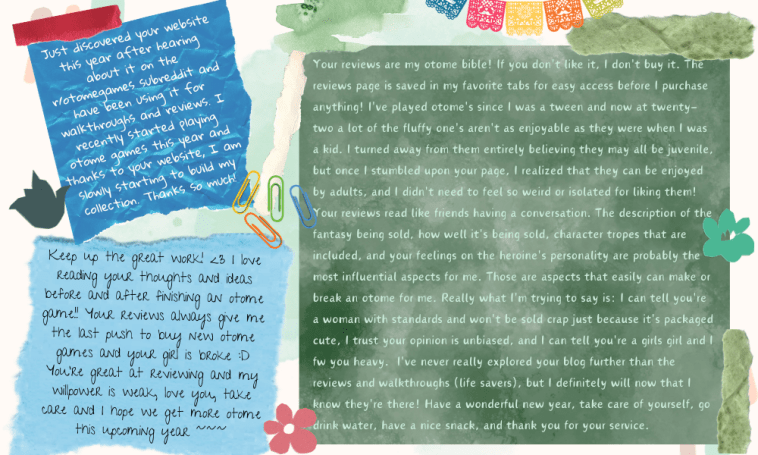 Just discovered your website
this year after hearing
about it on the
r/otomegames subreddit and
have been using it for
walkthroughs and reviews. I
recently started playing
otome games this year and
thanks to your website, I am
slowly starting to build my
collection. Thanks so much!
Keep up the great work! <3 I love
reading your thoughts and ideas
before and after finishing an otome
game!! Your reviews always give me
the last push to buy new otome
games and your girl is broke :D
You're great at reviewing and my
willpower is weak, love you, take
care and I hope we get more otome
this upcoming year ~~~
Your reviews are my otome bible! If you don't like it, I don't buy it. The
reviews page is saved in my favorite tabs for easy access before I purchase
anything! I've played otome's since I was a tween and now at twenty-
two a lot of the fluffy one's aren't as enjoyable as they were when I was
a kid. I turned away from them entirely believing they may all be juvenile,
but once I stumbled upon your page, I realized that they can be enjoyed
by adults, and I didn't need to feel so weird or isolated for liking them!
Your reviews read like friends having a conversation. The description of the
fantasy being sold, how well it's being sold, character tropes that are
included, and your feelings on the heroine's personality are probably the
most influential aspects for me. Those are aspects that easily can make or
break an otome for me. Really what I'm trying to say is: I can tell you're
a woman with standards and won't be sold crap just because it's packaged
cute, I trust your opinion is unbiased, and I can tell you're a girls girl and I
fw you heavy. I've never really explored your blog further than the
reviews and walkthroughs (life savers), but I definitely will now that I
know they're there! Have a wonderful new year, take care of yourself, go
drink water, have a nice snack, and thank you for your service.